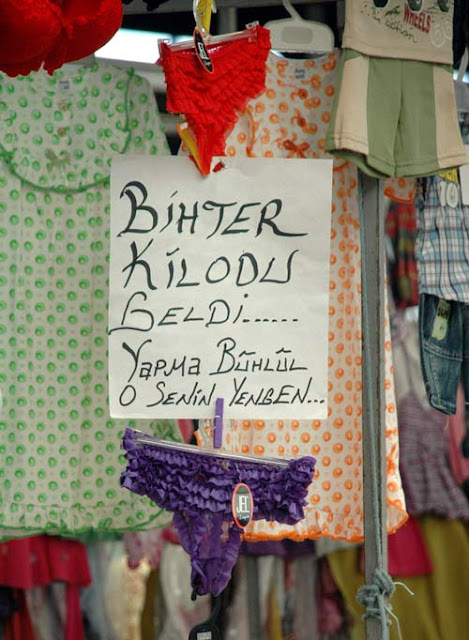 BİHTER
KİLODU
GELDİ......
YAPMA BÜHLÜL
O SENİN YENGEN...
JEL